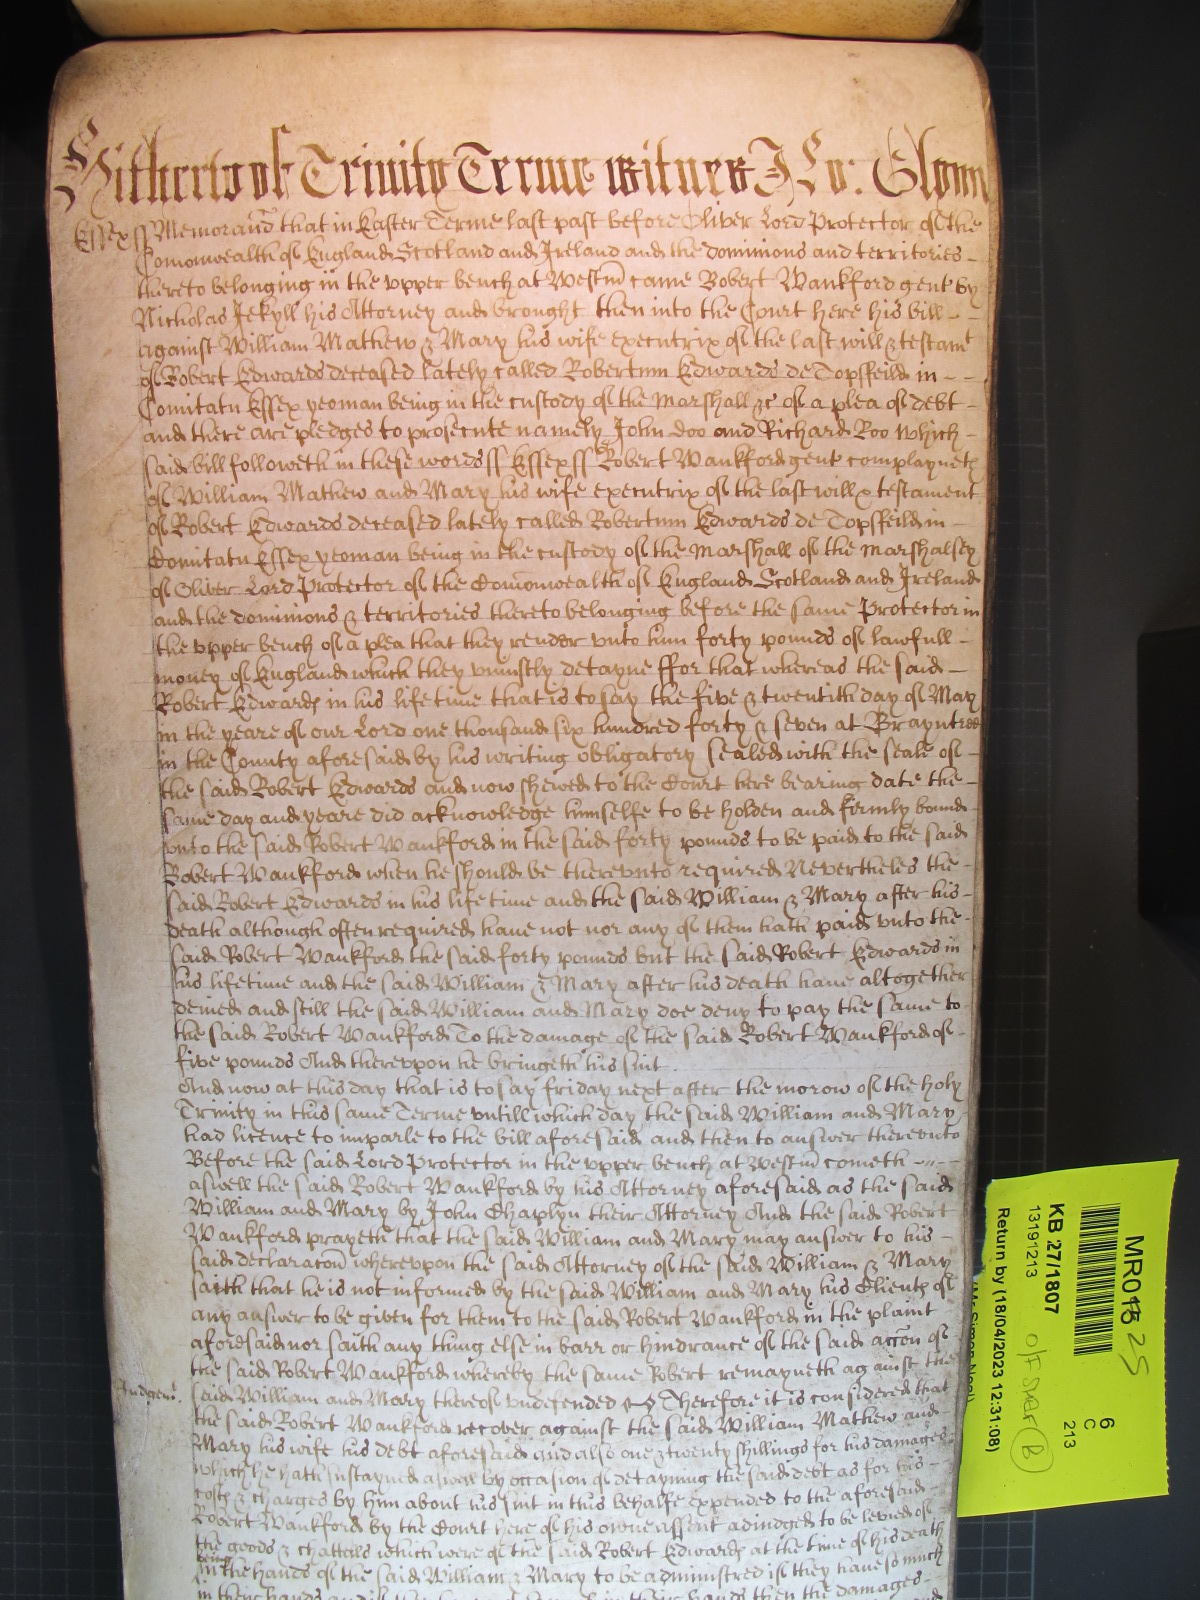 Hitherto of Trinity Terme witnes J Lo: Glynn
Essex ss Memorand that in Easter Terme last past before Oliver Lord Protector of the
Comonwealth of England Scotland and Ireland and the dominions and territories
thereto belonging in the vpper bench at Westm came Robert Wankford gent by
Nicholas Jekyll his Attorney and brought then into the Court here his bill
against William Mathew & Mary his wife executrix of the last will & testamt
of Robert Edwards deceased lately called Robertum Edwards de Topsfeild in
Comitatu Essex yeoman being in the custody of the Marshall &c of a plea of debt
and there are pledges to prosecute namely John Doo and Richard Roo Which
said bill followeth in these words ss Essex ss Robert Wankford gent complayneth
of William Mathew and Mary his wife executrix of the last will & testament
of Robert Edwards deceased lately called Robertum Edwards de Topsfeild in
Comitatu Essex yeoman being in the custody of the Marshall of the Marshalsey
of Oliver Lord Protector of the Comonwealth of England Scotland and Ireland
and the dominions & territories thereto belonging before the same Protector in
the vpper bench of a plea that they render vnto him forty pounds of lawfull
money of England which they vniustly detayne ffor that whereas the said
Robert Edwards in his life time that is to say the five & twentith day of May
in the yeare of our Lord one thousand six hundred forty & seven at Brayntree
in the County aforesaid by his writing obligatory sealed with the seale of
the said Robert Edwards and now shewed to the Court here bearing date the
same day and yeare did acknowledge himselfe to be holden and firmly bound
vnto the said Robert Wankford in the said forty pounds to be paid to the said
Robert Wankford when he should be therevnto required Nevertheles the
said Robert Edwards in his life time and the said William & Mary after his
death although often required have not nor any of them hath paid vnto the
said Robert Wankford the said forty pounds but the said Robert Edwards in
his lifetime and the said William & Mary after his death have altogether
denied and still the said William and Mary doe deny to pay the same to
the said Robert Wankford To the damage of the said Robert Wankford of
five pounds And therevpon he bringeth his suit.
And now at this day that is to say friday next after the morow of the holy
Trinity in this same Terme vntill which day the said William and Mary
had licence to imparle to the bill aforesaid and then to answer therevnto
Before the said Lord Protector in the vpper bench at Westm cometh
aswell the said Robert Wankford by his Attorney aforesaid as the said
William and Mary by John Chaplyn their Attorney And the said Robert
Wankford prayeth that the said William and Mary may answer to his
said declaracon wherevpon the said Attorney of the said William & Mary
saith that he is not informed by the said William and Mary his Clients of
any answer to be given for them to the said Robert Wankford in the plaint
aforesaid nor saith any thing else in barr or hindrance of the said accon of
the said Robert Wankford whereby the same Robert remayneth against the
Judgemt
said William and Mary thereof vndefended Therefore it is considered that
the said Robert Wankford recover against the said William Mathew and
Mary his wife his debt aforesaid and also one & twenty shillings for his damages
which he hath sustayned aswell by occasion of detayning the said debt as for his
costs & charges by him about his suit in this behalfe expended to the aforesaid
Robert Wankford by the Court here of his owne assent adiudged to be levied of
the goods & chattells which were of the said Robert Edwards at the time of his death
being
in the hands of the said William & Mary to be administred if they have so much
in their hands and if they have not so much in their hands then the damages
MR018 25
6
C
213
KB 27/1807
13191213
Return by (18/04/2023 12:31:08)
(Mr Simon Neal)
B